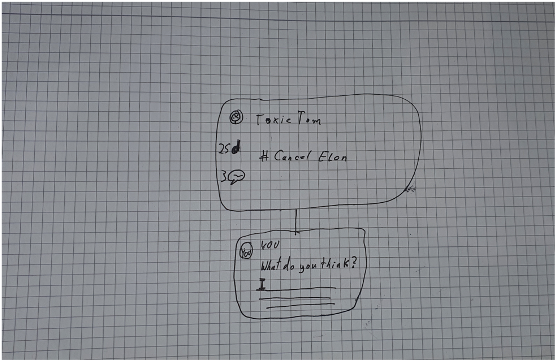 Toxic Tom
25
# Cancel Elon
3
You
YOU
What do you think?